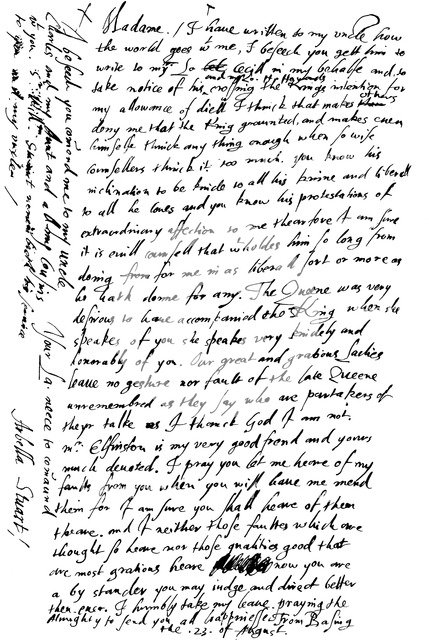 Madame. / I have written to my uncle how
the world goes w me, I beseech you gett him to
write to my Lo Cecill in my behalfe and so
take notice of his crossing the Kings intention for
my allowance of diett I thinck that makes others
deny me that the King graunted, and makes even
himselfe thinck any thing enough when so wise
counsellers thinck it too much. you know his
inclination to be kinde to all his kinne and liberall
to all he loves and you know his protestations of
extraordinary affection to me thearfore I am sure
it is evill counsell that wholdes him so long from
doing for me in as liberall sort or more as
he hath donne for any. The Queene was very
desirous to have accompanied the King when she
speakes of you she speakes very kindely and
honorably of you. Our great and gratious Ladies
leave no gesture nor faulte of the late Queene
unremembred as they say who are partakers of
theyr talke as I thanck God I am not.
mr. Elfinston is my very good frend and yours
much devoted. I pray you let me heare of my
faults from you when you will have me mend
them for I am sure you shall heare of them
theare. and I neither those faultes which are
thought so heare nor those qualities good that
are most gratious heare now you are
a by stander you may iudge and direct better
then ever. I humbly take my leave praying the
Almighty to send you all happinesse. From Basing
the .23. of August.
I beseech you comend me to my uncle
and all my
Your La. neece to comaund
Arbella Stuart /